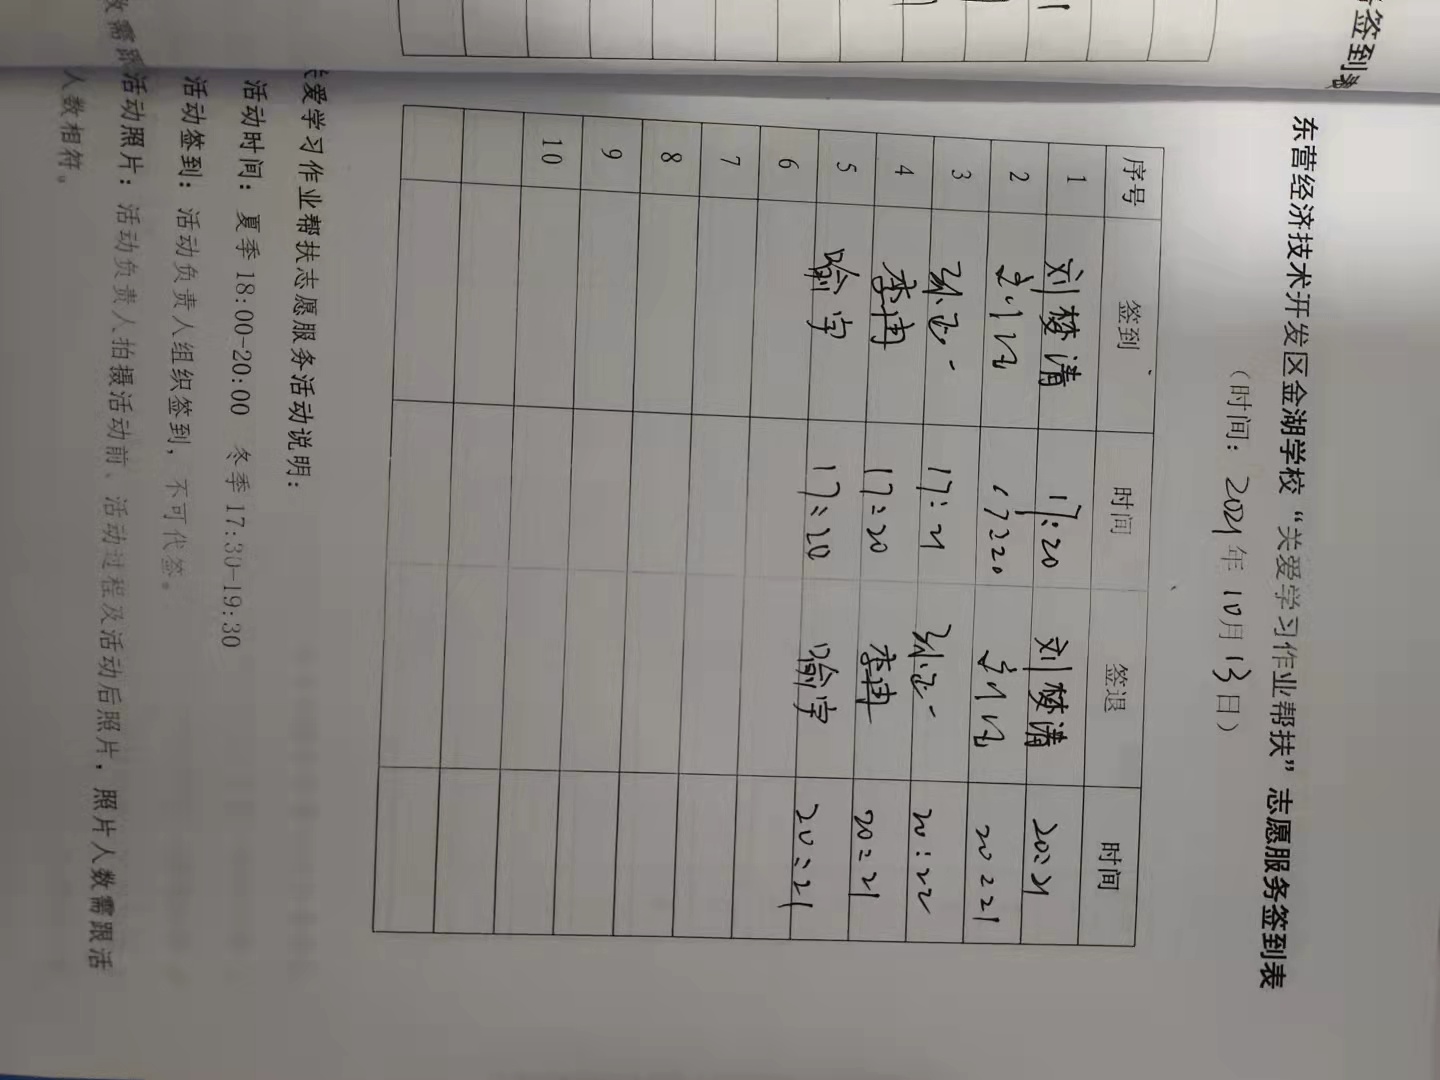 签到
东营经济技术开发区金湖学校“关爱学习作业帮扶”志愿服务签到表
（时间：2021年10月13日）
序号 签到 时间 签退 时间
1 刘梦清 17:20 刘梦清 20:21
2 17:20 20:21
3 17:21 20:22
4 李冉 17:20 李冉 20:21
5 喻宇 17:20 喻宇 20:21
6
7
8
9
10
关爱学习作业帮扶志愿服务活动说明：
活动时间：夏季18:00-20:00 冬季17:30-19:30
活动签到：活动负责人组织签到，不可代签。
活动照片：活动负责人拍摄活动前、活动过程及活动后照片，照片人数需跟活
人数相符。
数需跟